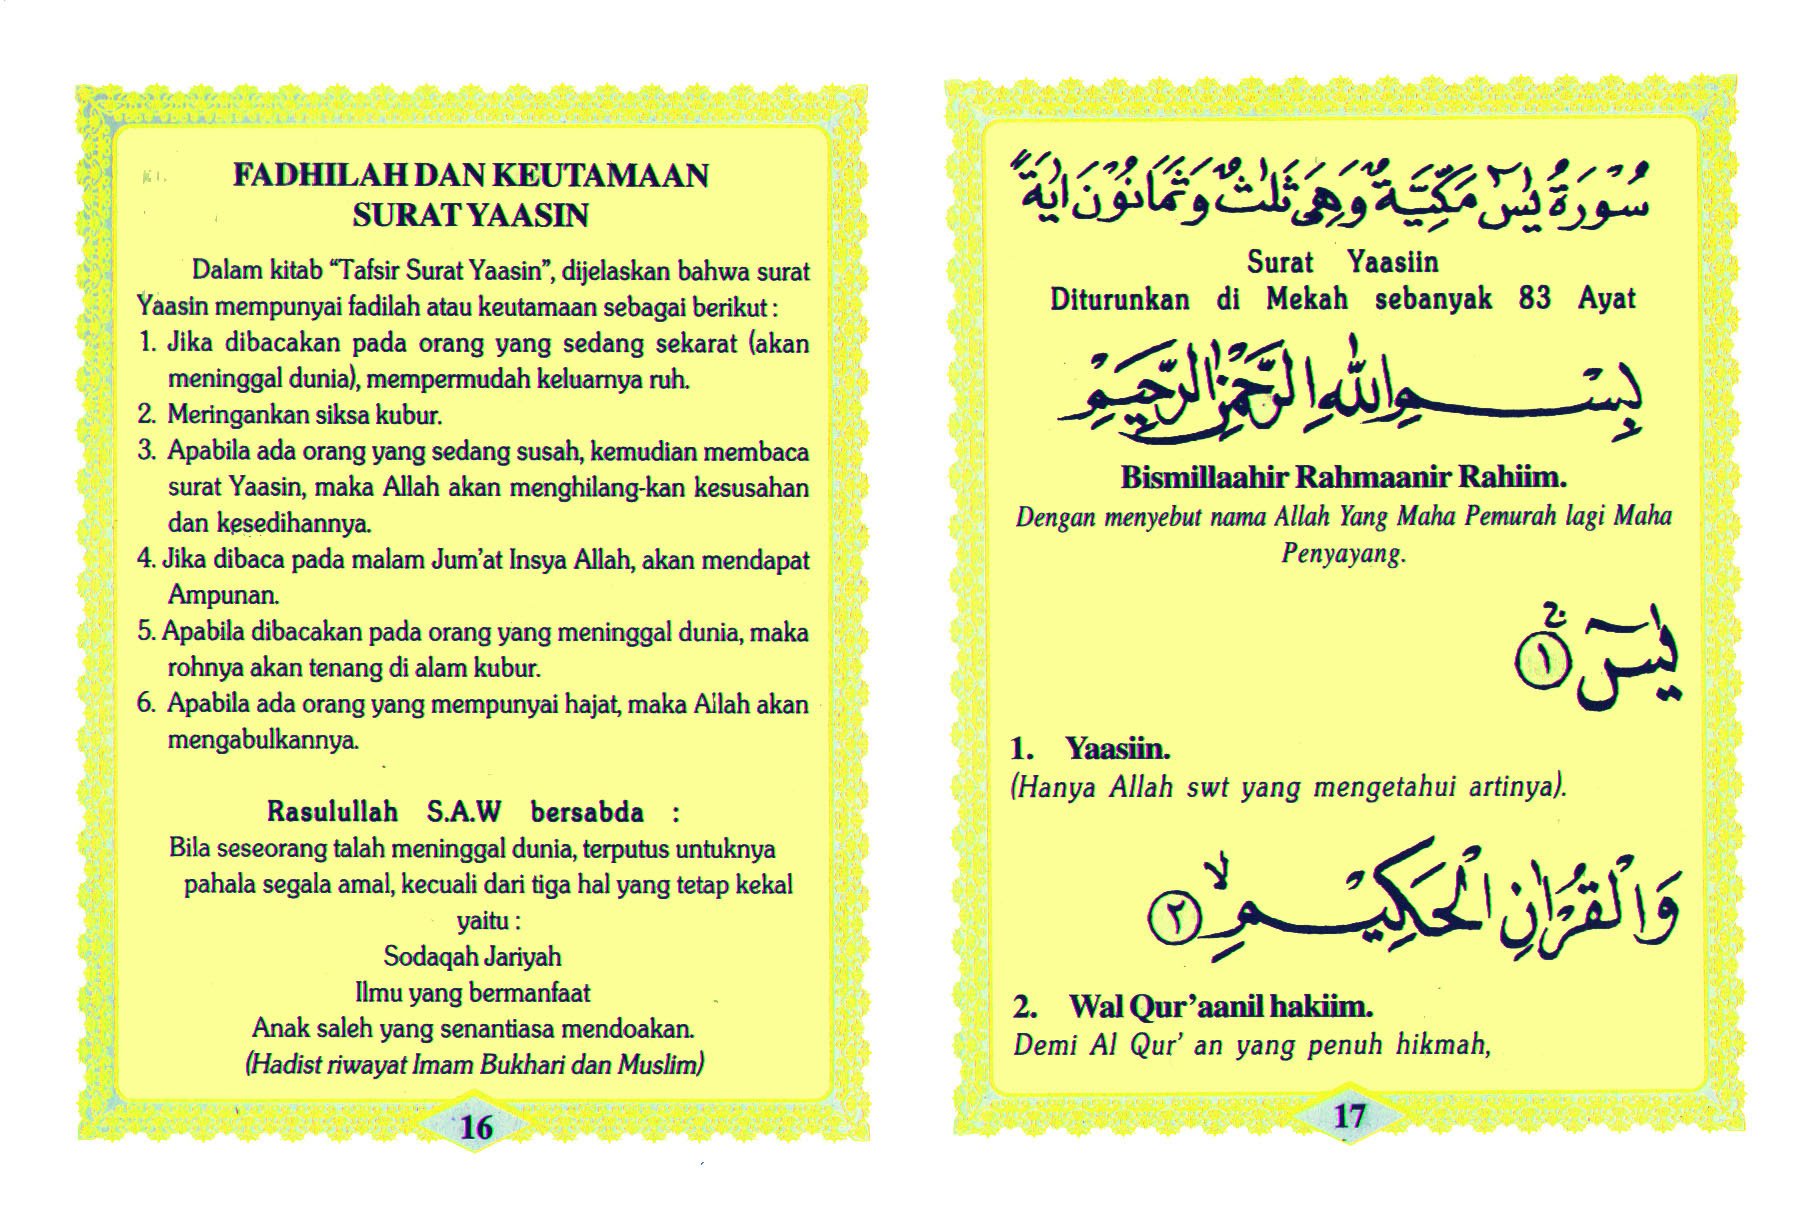 FADHILAH DAN KEUTAMAAN
SURAT YAASIN
Dalam kitab “Tafsir Surat Yaasin”, dijelaskan bahwa surat
Yaasin mempunyai fadilah atau keutamaan sebagai berikut :
1. Jika dibacakan pada orang yang sedang sekarat (akan
meninggal dunia), mempermudah keluarnya ruh.
2. Meringankan siksa kubur.
3. Apabila ada orang yang sedang susah, kemudian membaca
surat Yaasin, maka Allah akan menghilang-kan kesusahan
dan kesedihannya.
4. Jika dibaca pada malam Jum’at Insya Allah, akan mendapat
Ampunan.
5. Apabila dibacakan pada orang yang meninggal dunia, maka
rohnya akan tenang di alam kubur.
6. Apabila ada orang yang mempunyai hajat, maka Allah akan
mengabulkannya.
Rasulullah S.A.W bersabda :
Bila seseorang talah meninggal dunia, terputus untuknya
pahala segala amal, kecuali dari tiga hal yang tetap kekal
yaitu :
Sodaqah Jariyah
Ilmu yang bermanfaat
Anak saleh yang senantiasa mendoakan.
(Hadist riwayat Imam Bukhari dan Muslim)
16
سُوْرَةُ يٰسٓ مَكِّيَّةٌ وَهِيَ ثَلٰثٌ وَثَمَانُوْنَ اٰيَةً
Surat Yaasiin
Diturunkan di Mekah sebanyak 83 Ayat
بِسْمِ اللّٰهِ الرَّحْمٰنِ الرَّحِيْمِ
Bismillaahir Rahmaanir Rahiim.
Dengan menyebut nama Allah Yang Maha Pemurah lagi Maha
Penyayang.
يٰسٓ ۚ ١
1. Yaasiin.
(Hanya Allah swt yang mengetahui artinya).
وَالْقُرْاٰنِ الْحَكِيْمِ ۙ ٢
2. Wal Qur’aanil hakiim.
Demi Al Qur’ an yang penuh hikmah,
17